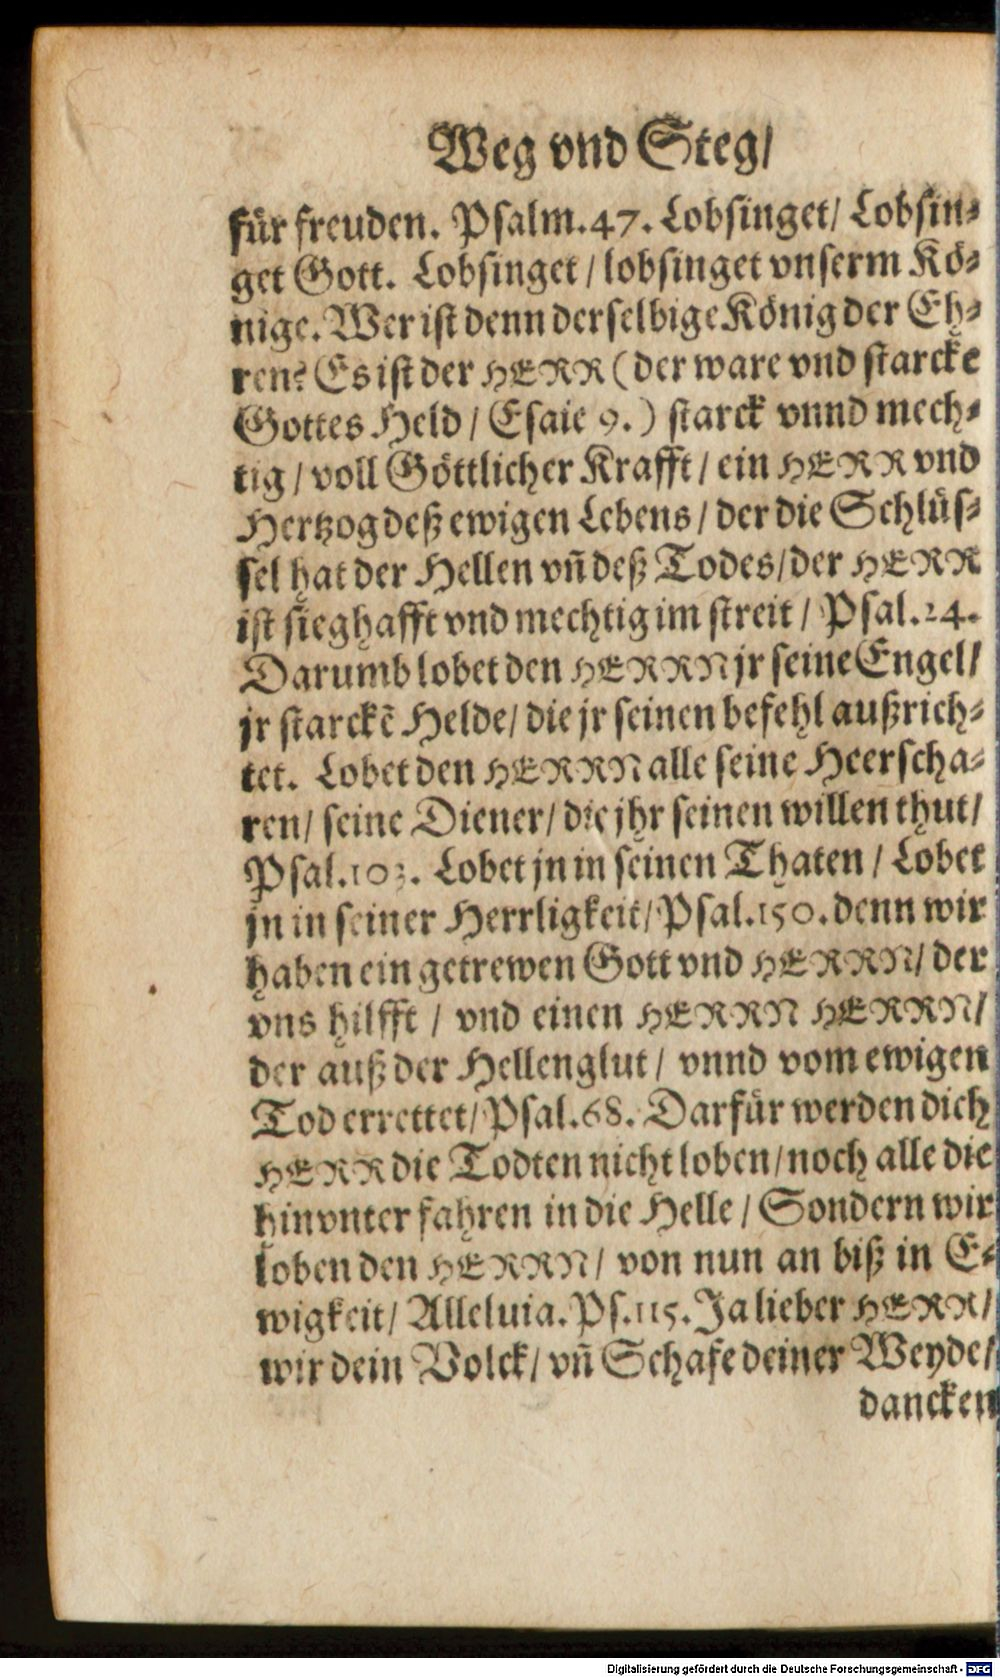 Weg vnd Steg/
für freuden. Psalm. 47. Lobsinget/ Lobsin-
get Gott. Lobsinget / lobsinget vnserm Kö-
nige. Wer ist denn derselbige König der Eh-
ren? Es ist der HERR (der ware vnd starcke
Gottes Held / Esaie 9.) starck vnnd mech-
tig / voll Göttlicher Krafft / ein HERR vnd
Hertzog deß ewigen Lebens / der die Schlüs-
sel hat der Hellen vñ deß Todes/ der HERR
ist sieghafft vnd mechtig im streit / Psal. 24.
Darumb lobet den HERRN jr seine Engel/
jr starckẽ Helde/ die jr seinen befehl außrich-
tet. Lobet den HERRN alle seine Heerscha-
ren/ seine Diener/ die jhr seinen willen thut/
Psal. 103. Lobet jn in seinen Thaten / Lobet
jn in seiner Herrligkeit/ Psal. 150. denn wir
haben ein getrewen Gott vnd HERRN/ der
vns hilfft / vnd einen HERRN HERRN/
der auß der Hellenglut / vnnd vom ewigen
Tod errettet/ Psal. 68. Darfür werden dich
HERR die Todten nicht loben/ noch alle die
hinvnter fahren in die Helle / Sondern wir
loben den HERRN/ von nun an biß in E-
wigkeit/ Alleluia. Ps. 115. Ja lieber HERR/
wir dein Volck/ vñ Schafe deiner Weyde/
dancken
Digitalisierung gefördert durch die Deutsche Forschungsgemeinschaft - DFG